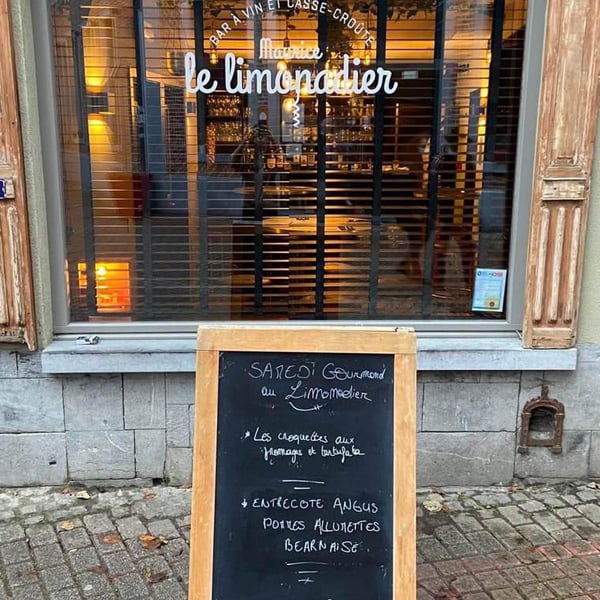 BAR À VIN ET CASSE-CROÛTE
Maurice
le limonadier
SAMEDI Gourmand
au Limonadier
* Les croquettes aux
fromages et tartufata
* ENTRECOTE ANGUS
POMMES ALLUMETTES
BEARNAISE